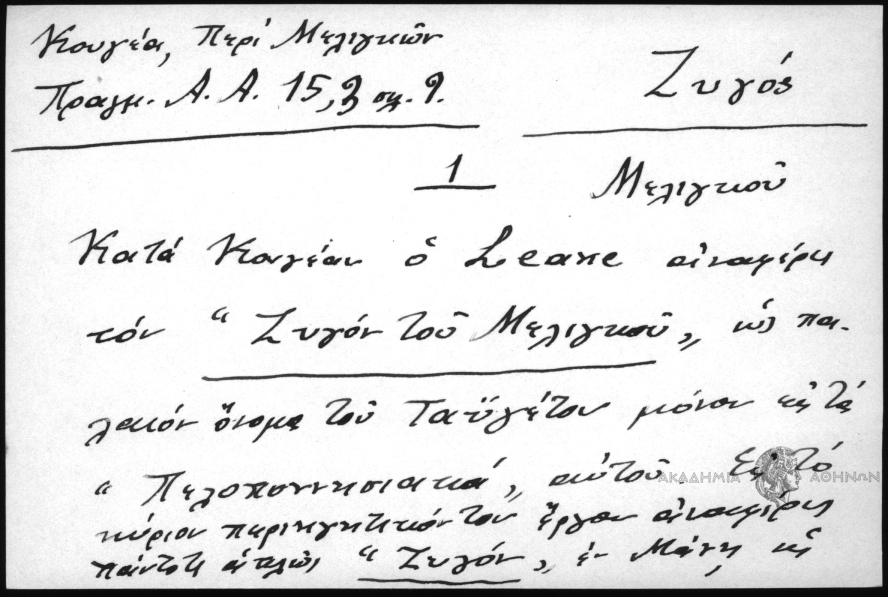 Κουγέα, Περί Μελιγκῶν
Πραγμ. Α. Α. 15, 3 σημ. 9.
Ζυγός
1
Μελιγκοῦ
Κατά Κουγέαν ὁ Leake ἀναφέρει
τόν "Ζυγόν τοῦ Μελιγκοῦ„ ὡς πα-
λαιόν ὄνομα τοῦ Ταϋγέτου μόνον εἰς τά
"Πελοποννησιακά„ αὐτοῦ. Εἰς τό
κύριον περιηγητικόν του ἔργον ἀναφέρει
πάντοτε ἁπλῶς "Ζυγόν„ ἐν Μάνῃ, καί
ΑΚΑΔΗΜΙΑ ΑΘΗΝΩΝ